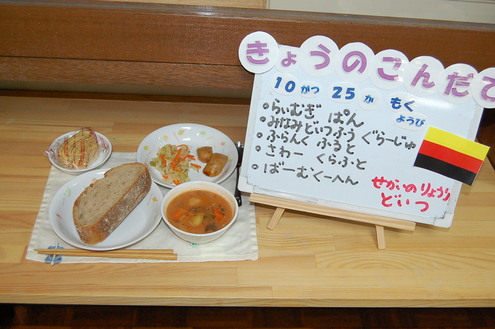 きょうのごんだて
10がつ 25か もくようび
・らいむぎ ぱん
・みなみどいつふう ぐらーじゅ
・ふらんく ふると
・さわー くらふと
・ばーむくーへん
せかいのりょうり
どいつ